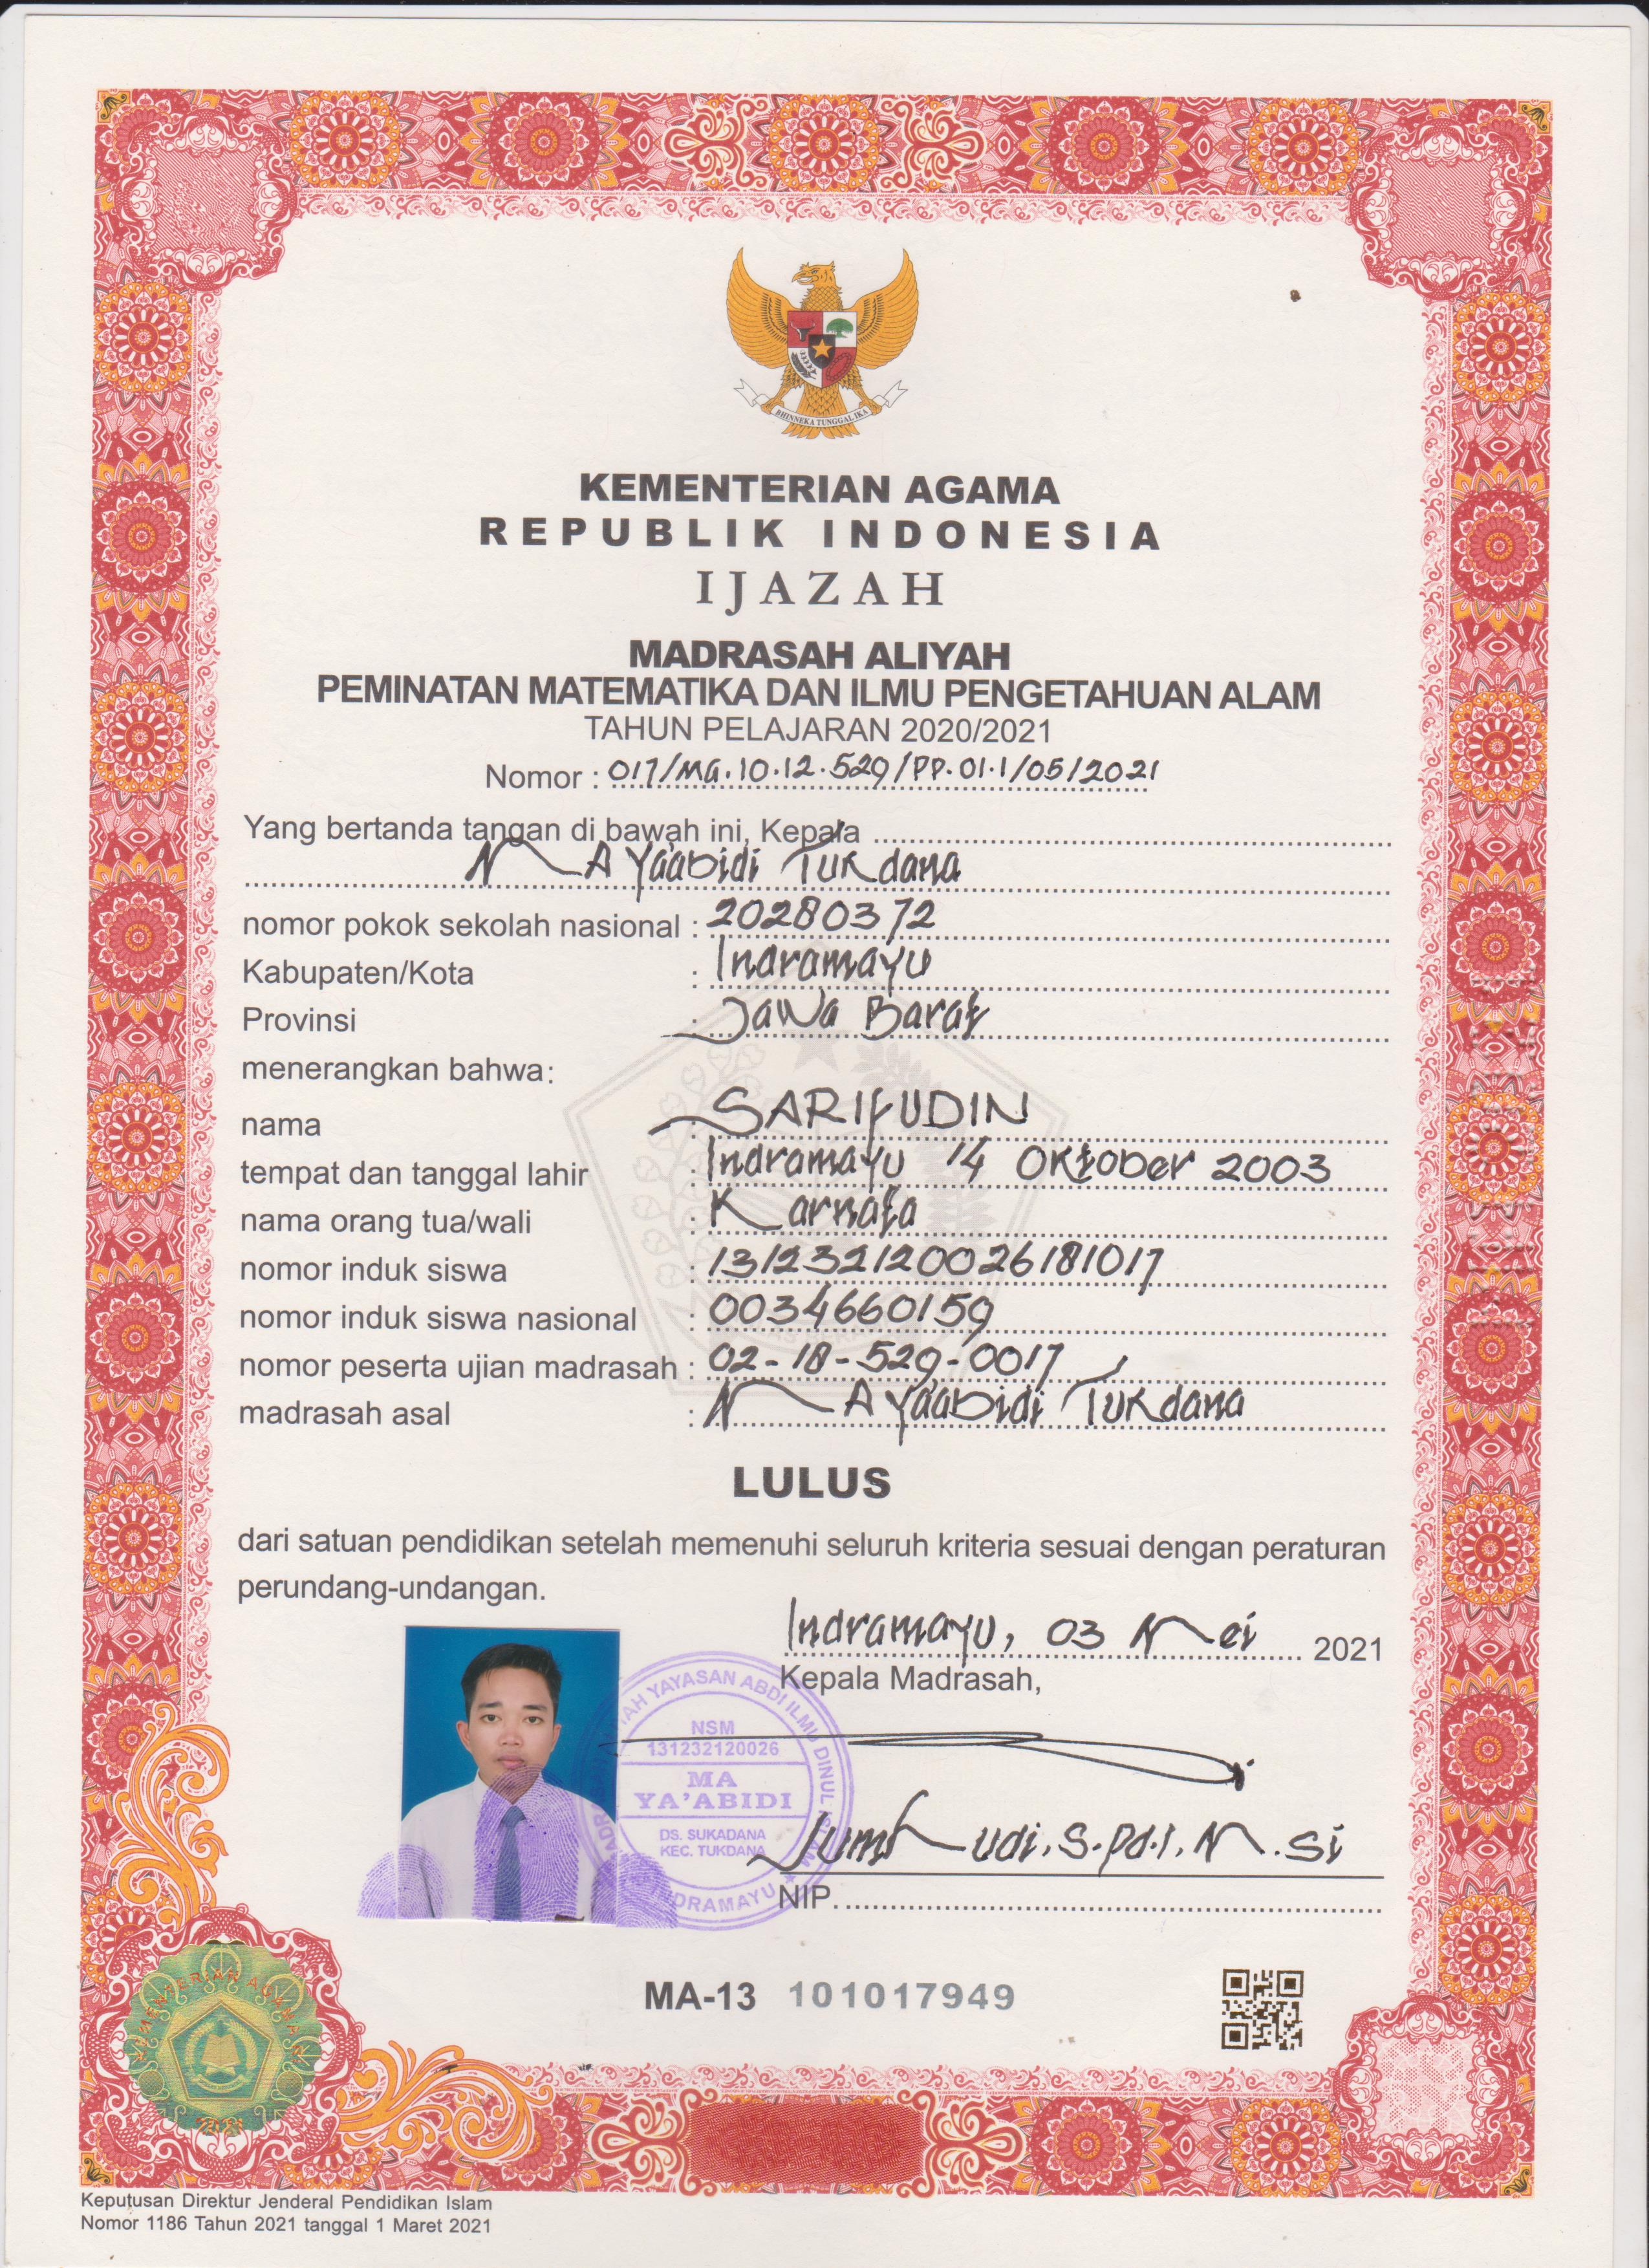 BHINNEKA TUNGGAL IKA
KEMENTERIAN AGAMA
REPUBLIK INDONESIA
IJAZAH
MADRASAH ALIYAH
PEMINATAN MATEMATIKA DAN ILMU PENGETAHUAN ALAM
TAHUN PELAJARAN 2020/2021
Nomor : 017/MA.10.12.529/PP.01.1/05/2021
Yang bertanda tangan di bawah ini, Kepala
MA Ya'abidi Tukdana
nomor pokok sekolah nasional : 20280372
Kabupaten/Kota : Indramayu
Provinsi : Jawa Barat
menerangkan bahwa:
nama : SARIFUDIN
tempat dan tanggal lahir : Indramayu 14 Oktober 2003
nama orang tua/wali : Karnata
nomor induk siswa : 131232120026181017
nomor induk siswa nasional : 0034660159
nomor peserta ujian madrasah : 02-18-529-0017
madrasah asal : MA Ya'abidi Tukdana
LULUS
dari satuan pendidikan setelah memenuhi seluruh kriteria sesuai dengan peraturan
perundang-undangan.
Indramayu, 03 Mei 2021
Kepala Madrasah,
YAYASAN ABDI ILMU DINUL
NSM
131232120026
MA
YA'ABIDI
DS. SUKADANA
KEC. TUKDANA
INDRAMAYU
Jumhudi, S.Pd.I, M.Si
NIP.
MA-13 101017949
KEMENTERIAN AGAMA
Keputusan Direktur Jenderal Pendidikan Islam
Nomor 1186 Tahun 2021 tanggal 1 Maret 2021